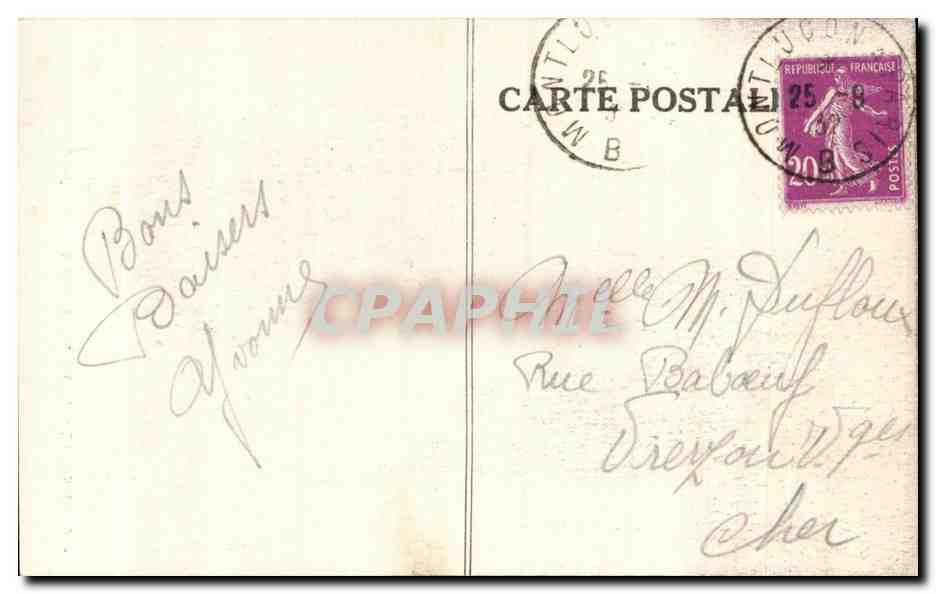 CARTE POSTALE
MONTLUÇON A PARIS
25 -8
32
B
MONTLU
25 -
B
REPUBLIQUE FRANÇAISE
20
POSTES
Bons
Baisers
Yvonne
CPAPHIL
Melle M. Dufloux
Rue Babœuf
Vierzon V.ges
Cher